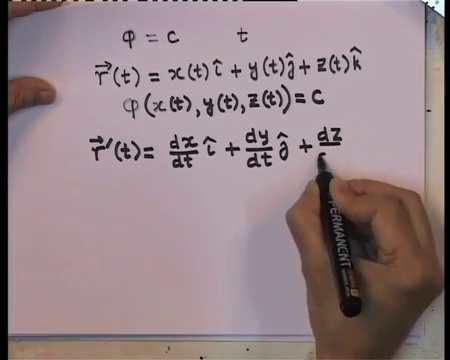 φ = c t
r⃗(t) = x(t)î + y(t)ĵ + z(t)k̂
φ(x(t), y(t), z(t)) = c
r⃗'(t) = dx/dt î + dy/dt ĵ + dz/
PERMANENT